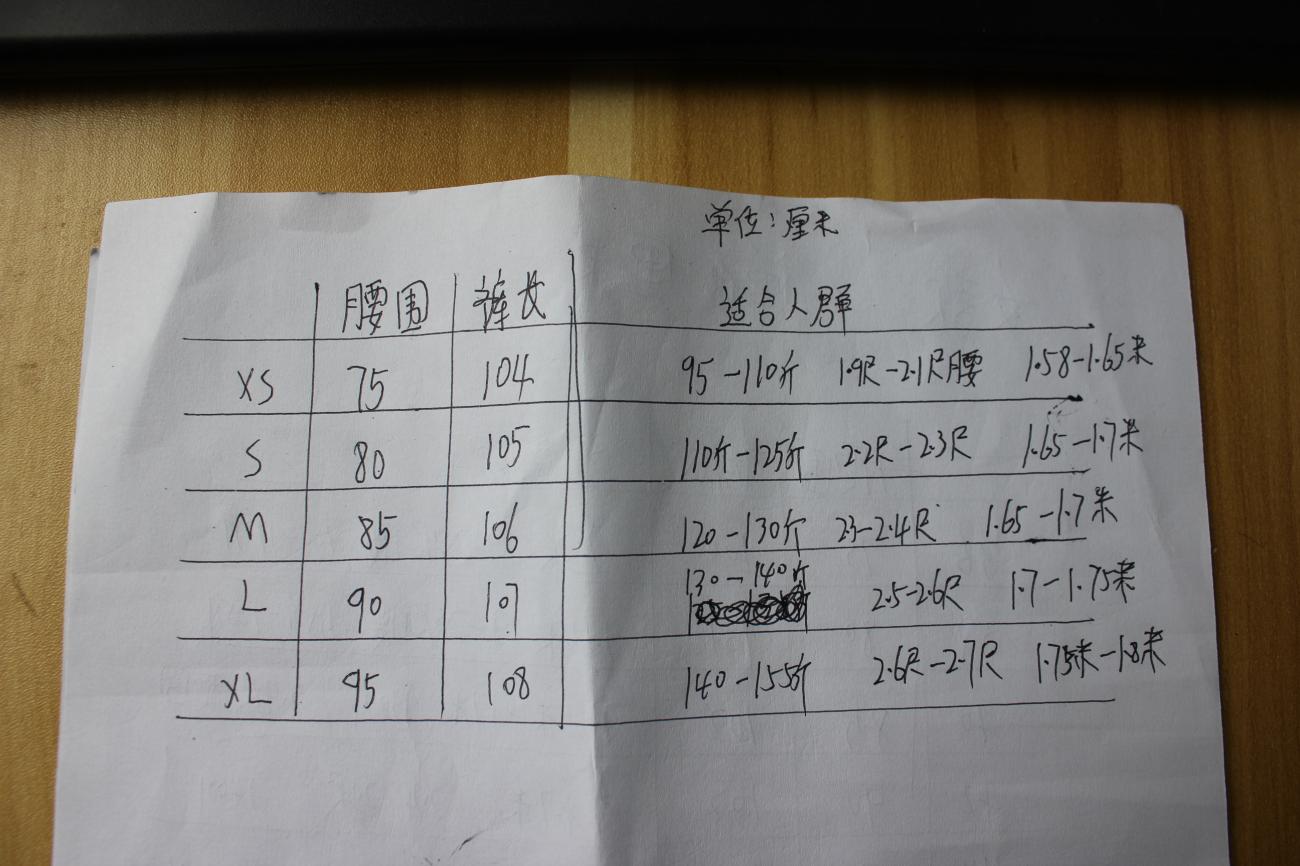 单位:厘米
腰围 裤长 适合人群
XS 75 104 95-110斤 1.9尺-2.1尺腰 1.58-1.65米
S 80 105 110斤-125斤 2.2尺-2.3尺 1.65-1.7米
M 85 106 120-130斤 2.3-2.4尺 1.65-1.7米
L 90 107 130-140斤 2.5-2.6尺 1.7-1.75米
XL 95 108 140-155斤 2.6尺-2.7尺 1.75米-1.8米